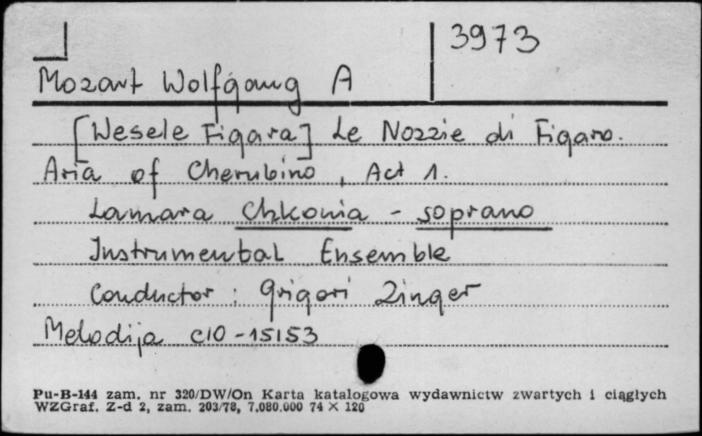 3973
Mozart Wolfgang A
[Wesele Figara] Le Nozzie di Figaro.
Aria of Cherubino, Act 1.
Lamara Chkonia - soprano
Instrumental Ensemble
Conductor: Grigori Zinger
Melodija C10-15153
Pu-B-144 zam. nr 320/DW/On Karta katalogowa wydawnictw zwartych i ciągłych
WZGraf. Z-d 2, zam. 203/78, 7.080.000 74 × 120